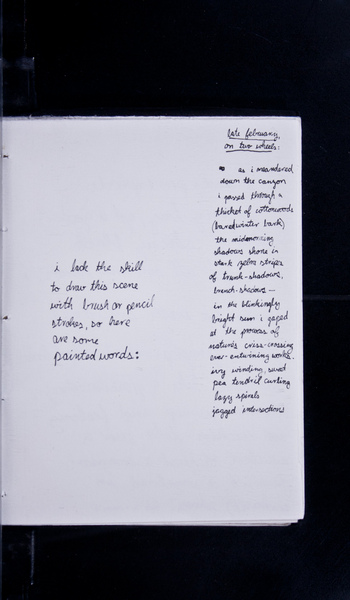 i lack the skill
to draw this scene
with brush or pencil
strokes, so here
are some
painted words:
late february,
on two wheels:
as i meandered
down the canyon
i passed through a
thicket of cottonwoods
(bared winter bark)
the midmorning
shadows shone in
stark zebra stripes
of trunk-shadows,
branch-shadows —
in the blinkingly
bright sun i gazed
at the process of
natures criss-crossing
ever-entwining works.
ivy winding, sweet
pea tendril curling
lazy spirals
jagged intersections